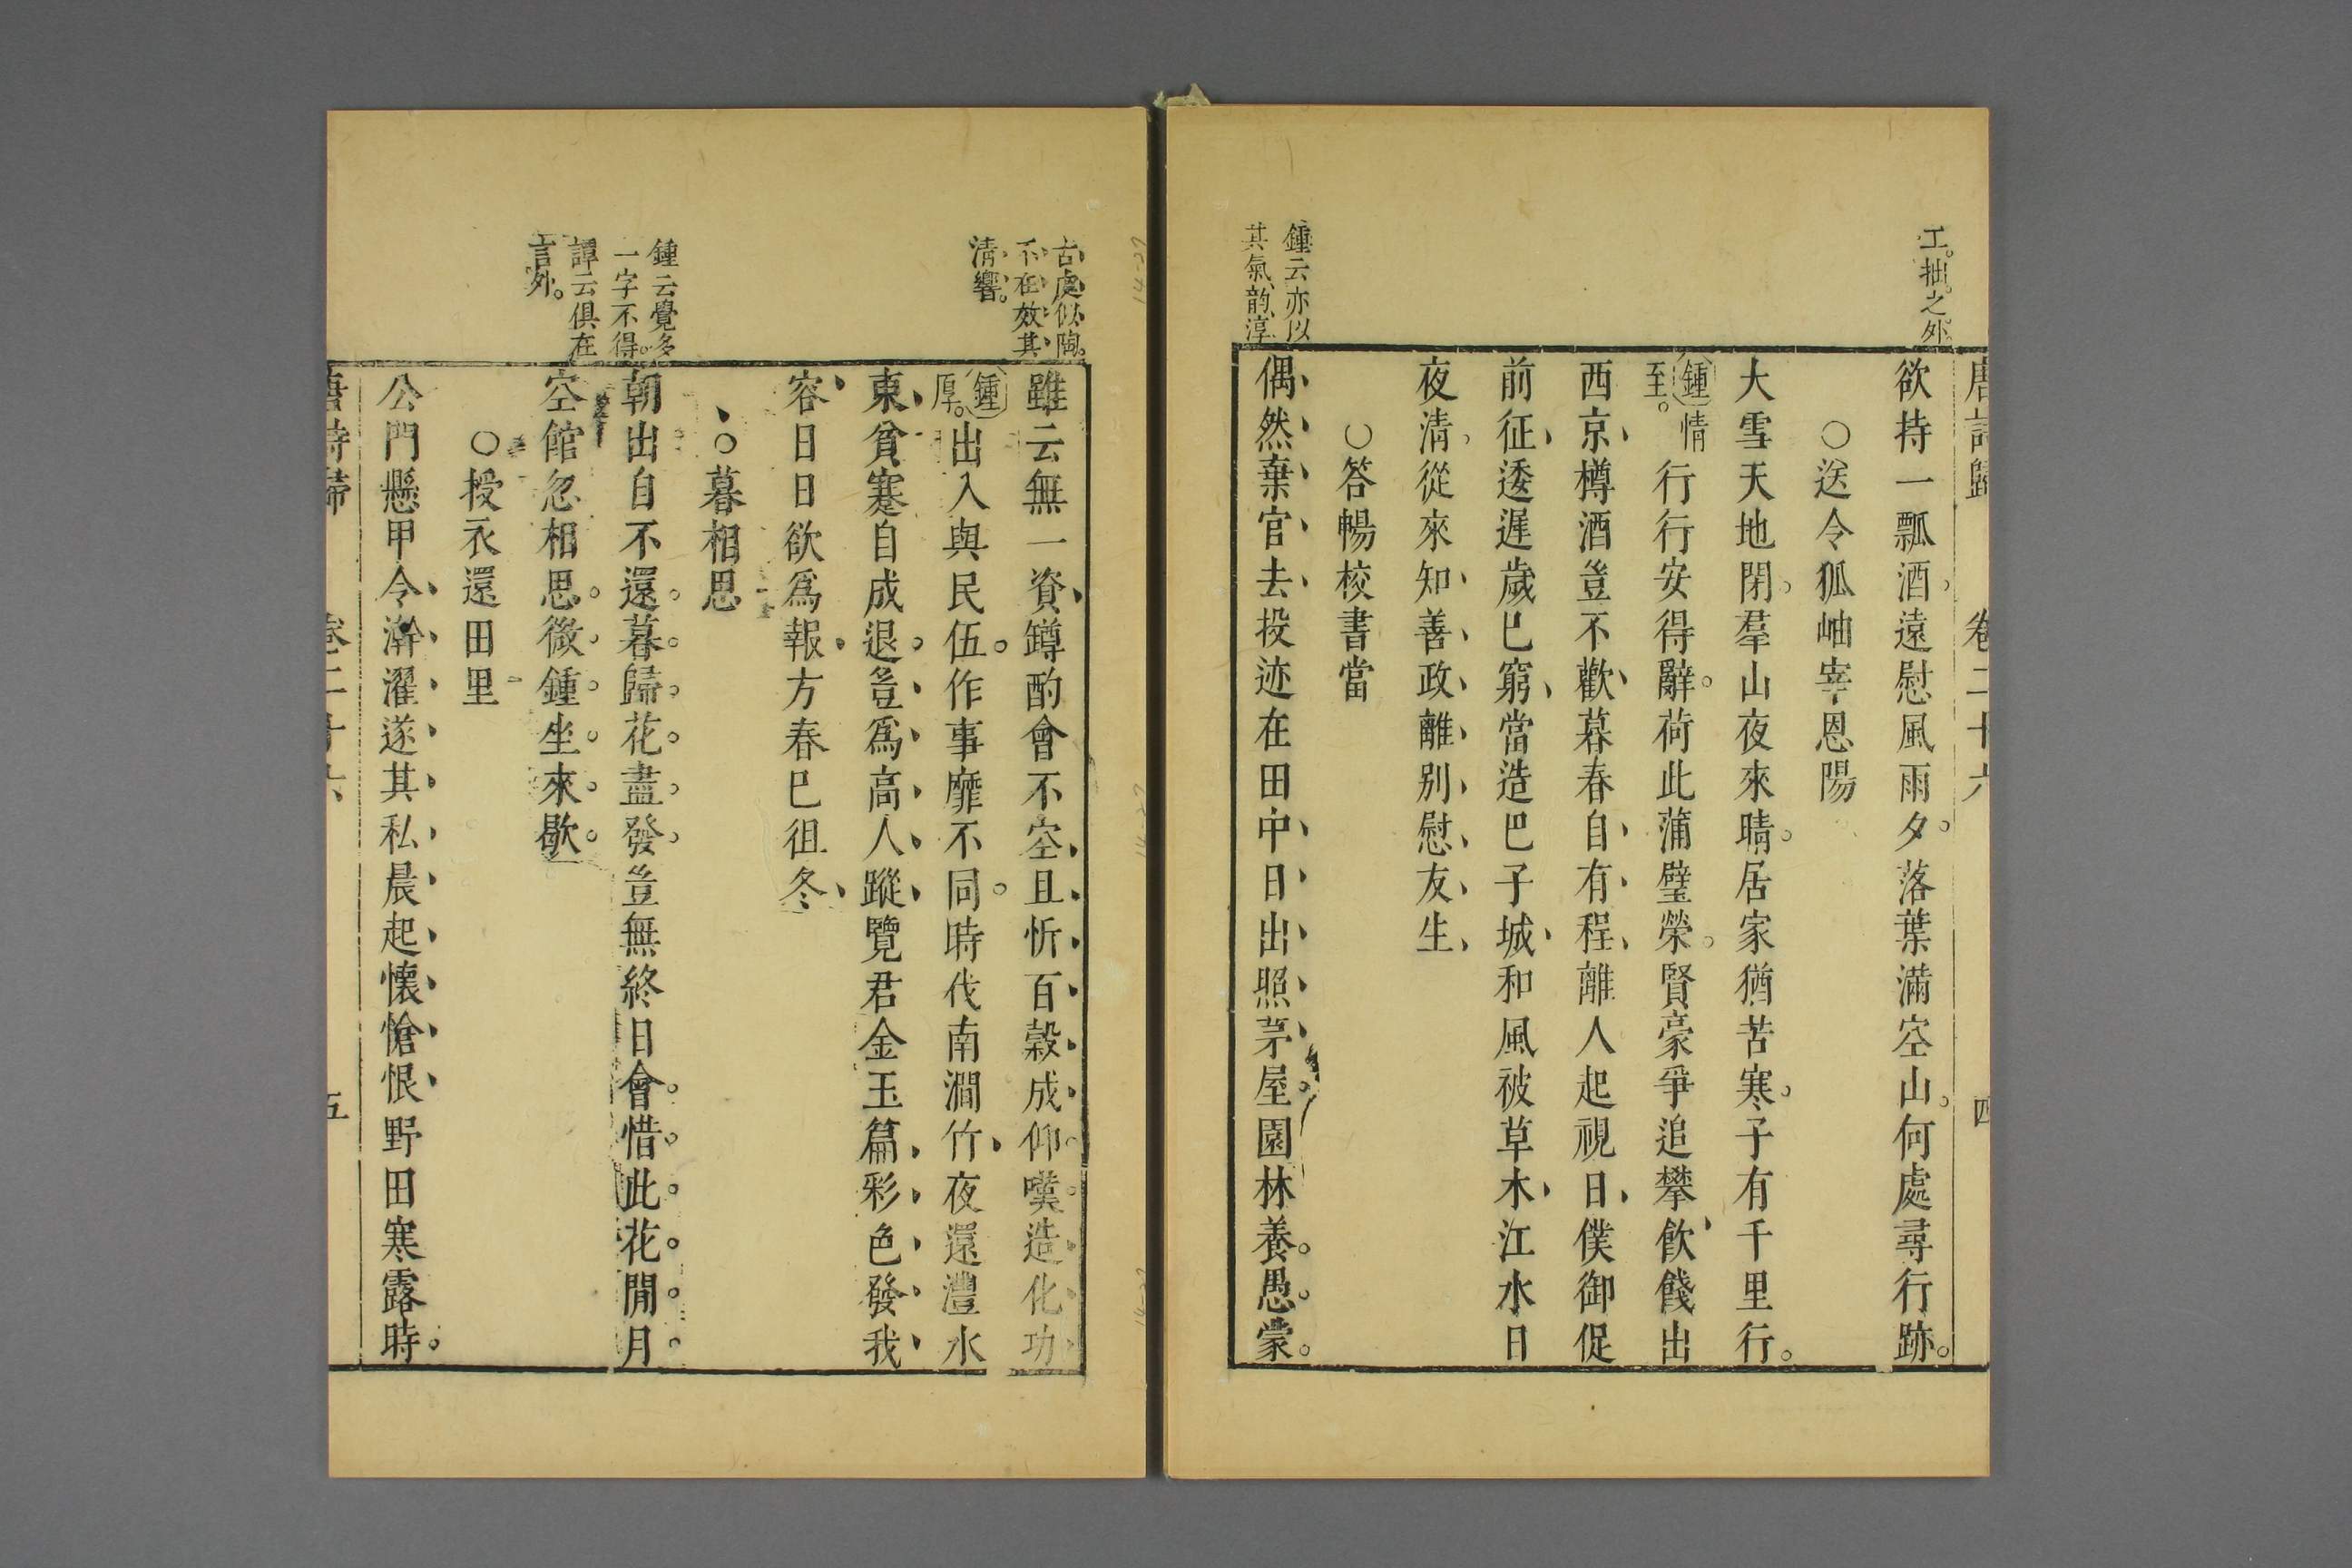 唐詩歸 卷二十六 四
工拙之外
欲持一瓢酒遠慰風雨夕落葉滿空山何處尋行跡
○送令狐岫宰恩陽
大雪天地閉羣山夜來晴居家猶苦寒子有千里行
鍾情至
行行安得辭荷此蒲璧榮賢豪爭追攀飲餞出
西京樽酒豈不歡暮春自有程離人起視日僕御促
前征逶遲歲已窮當造巴子城和風被草木江水日
夜淸從來知善政離别慰友生
○答暢校書當
鍾云亦以
其氣韵淳
偶然棄官去投迹在田中日出照茅屋園林養愚蒙
古處似陶
不在效其
淸響
雖云無一資罇酌會不空且忻百穀成仰嘆造化功
鍾厚
出入與民伍作事靡不同時伐南澗竹夜還灃水
東貧蹇自成退豈爲高人蹤覽君金玉篇彩色發我
容日日欲爲報方春巳徂冬
○暮相思
鍾云覺多
一字不得
譚云俱在
言外
朝出自不還暮歸花盡發豈無終日會惜此花間月
空館忽相思微鍾坐來歇
○授衣還田里
公門懸甲令澣濯遂其私晨起懷愴恨野田寒露時
唐詩歸 卷二十六 五